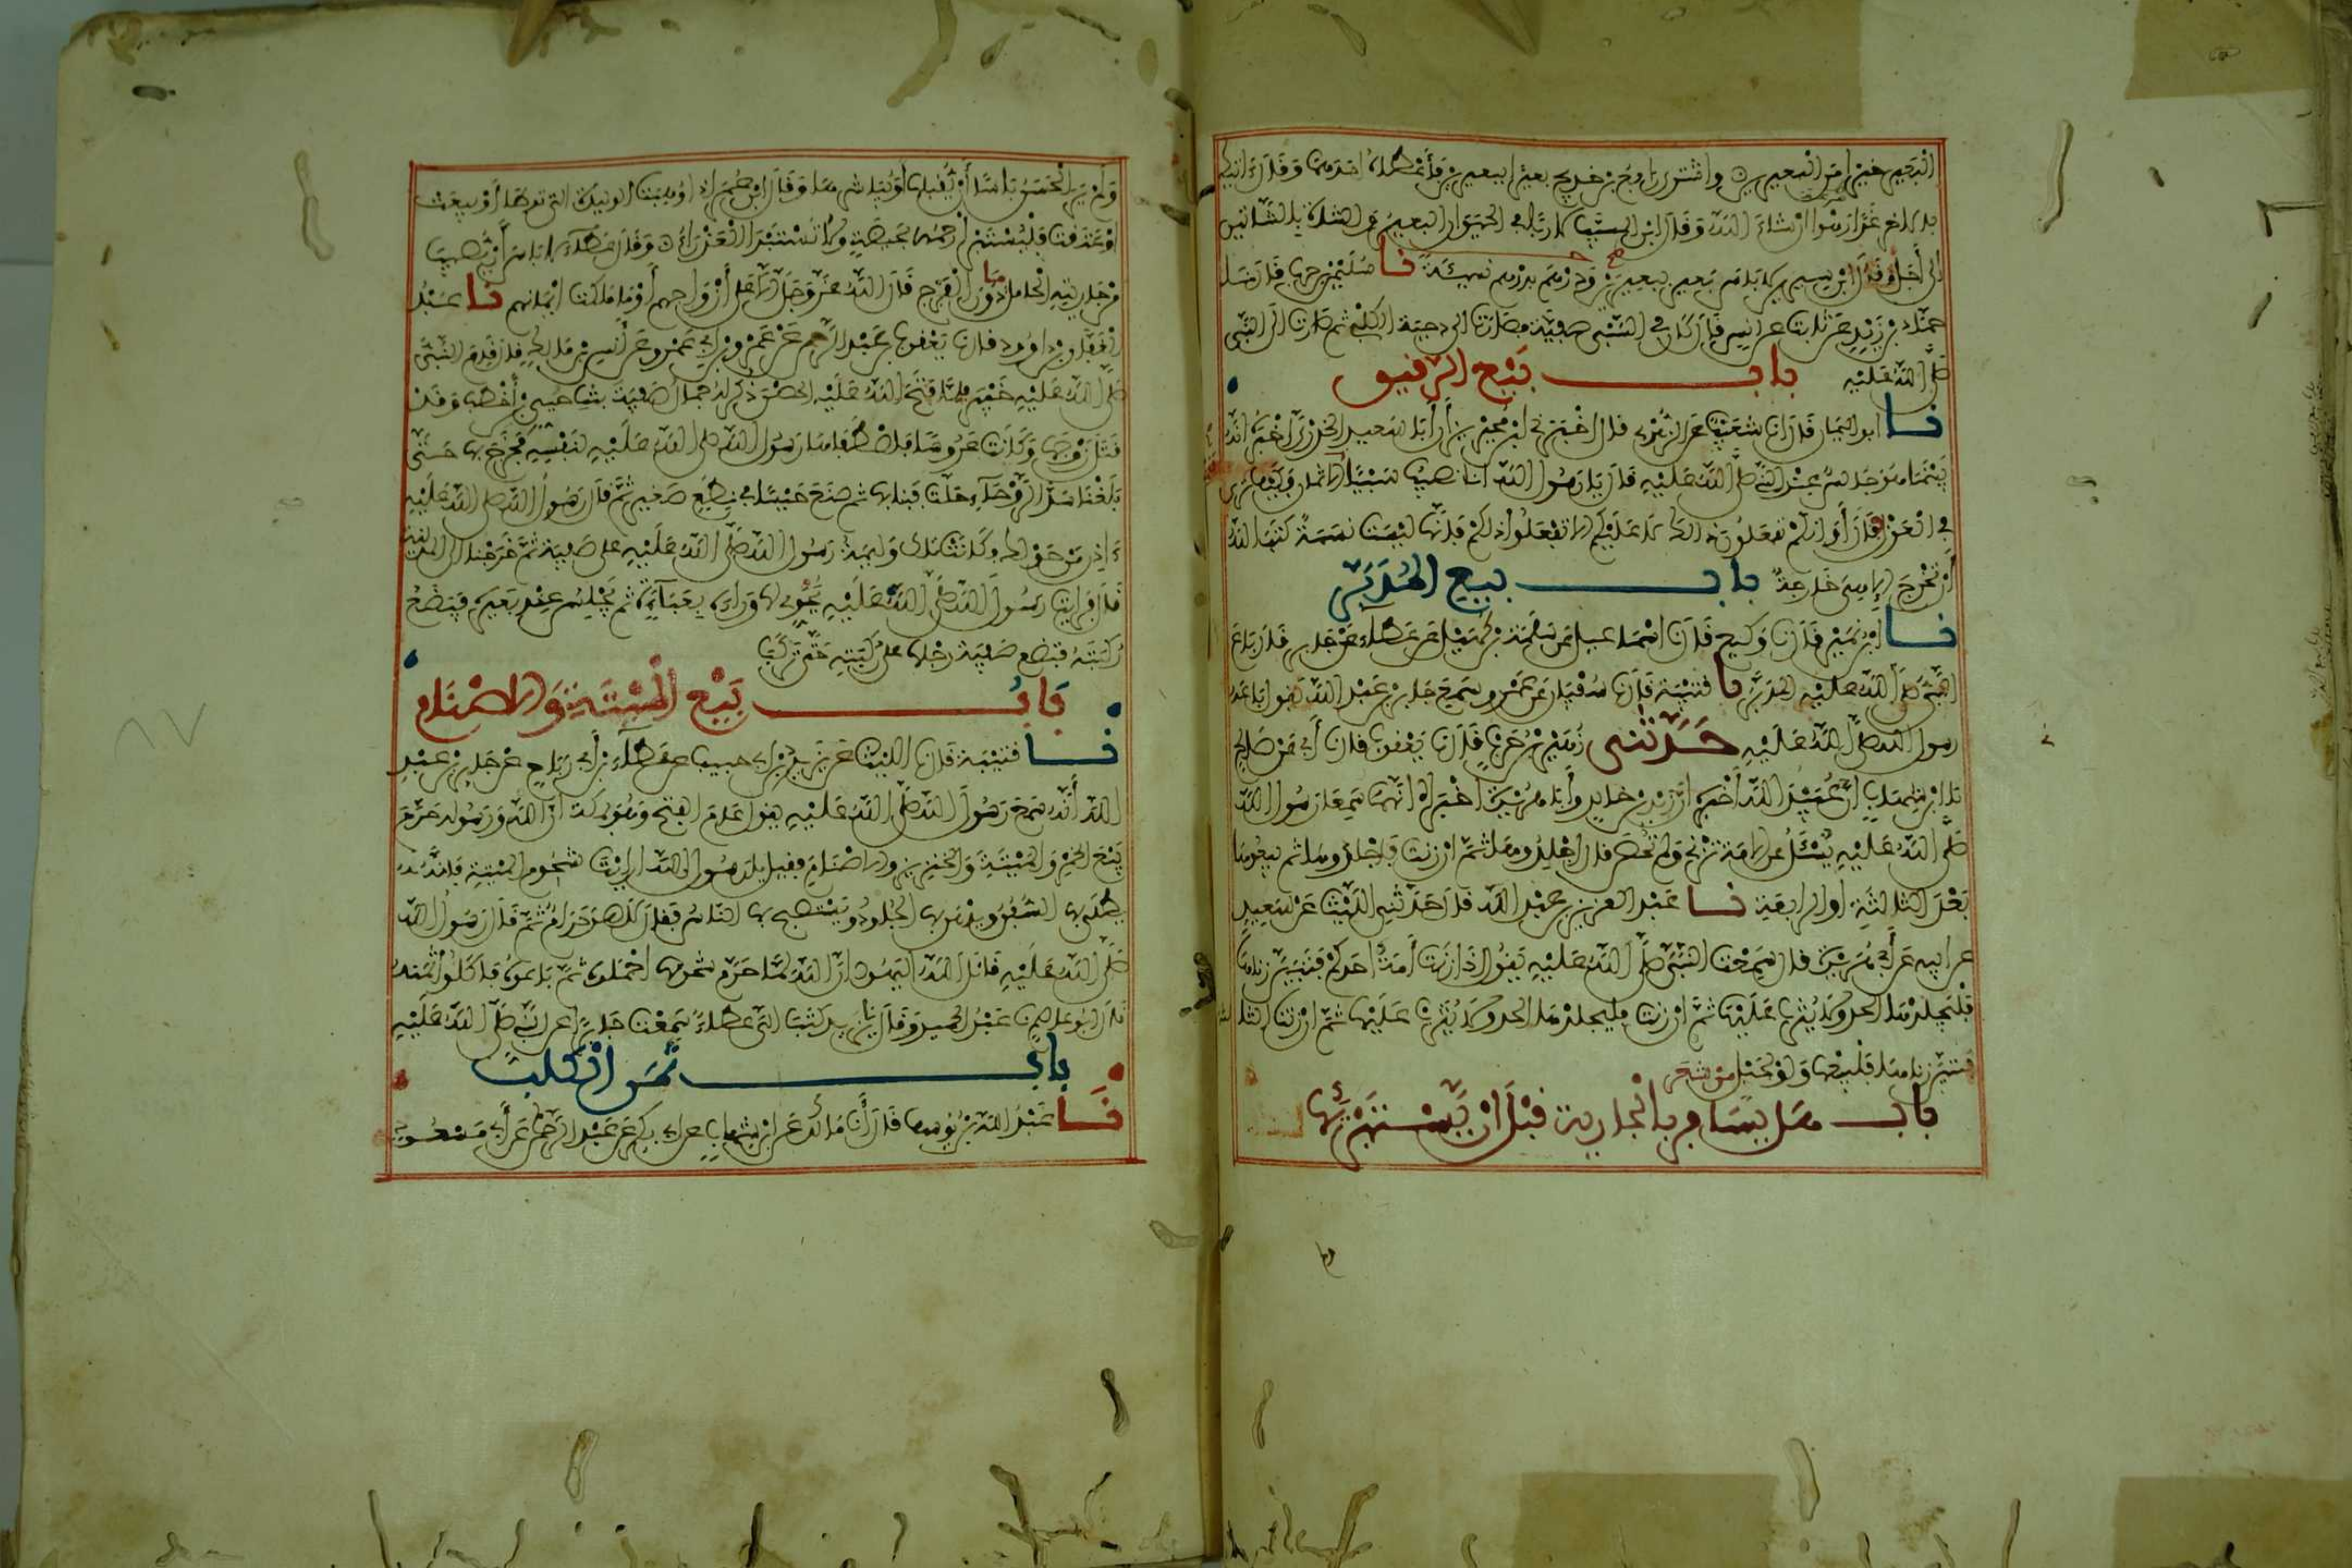 البعير خير من البعيرين واشترى رافع بن خديج بعيرا ببعيرين فأعطاه احدهما وقال ءاتيك
بالاخر غدا رهوا ان شاء الله وقال ابن المسيب لا ربا في الحيوان البعير والشاة بالشاتين
الى أجل وقال ابن سيرين لا باس بعير ببعيرين ودرهم بدرهم نسيئة نا سليمن بن حرب قال نا
حماد بن زيد عن ثابت عن انس قال كان في السبي صفية فصارت الى دحية الكلبي ثم صارت الى النبي
صلى الله عليه باب بيع الرقيق
نا ابو اليمان قال انا شعيب عن الزهري قال اخبرني ابن محيريز أن أبا سعيد الخدري أخبره أنه
بينما هو جالس عند النبي صلى الله عليه قال يا رسول الله انا نصيب سبيا فكيف ترى
في العزل فقال أوإنكم تفعلون ذلك لا عليكم الا تفعلوا ذلكم فانها ليست نسمة كتب الله
أن تخرج إلا هي خارجة باب بيع المدبر
نا ابن نمير قال نا وكيع قال نا اسماعيل عن سلمة بن كهيل عن عطاء عن جابر قال باع
النبي صلى الله عليه المدبر نا قتيبة قال نا سفيان عن عمرو سمع جابر بن عبد الله يقول باعه
رسول الله صلى الله عليه حدثني زهير بن حرب قال نا يعقوب قال نا أبي عن صالح
قال ابن شهاب أن عبيد الله أخبره أن زيد بن خالد وأبا هريرة أخبراه انهما سمعا رسول الله
صلى الله عليه يسئل عن الامة تزني ولم تحصن قال اجلدوها ثم ان زنت فاجلدوها ثم بيعوها
بعد الثالثة او الرابعة نا عبد العزيز بن عبد الله قال حدثني الليث عن سعيد
عن ابيه عن أبي هريرة قال سمعت النبي صلى الله عليه يقول اذا زنت أمة احدكم فتبين زناها
فليجلدها الحد ولا يثرب عليها ثم ان زنت فليجلدها الحد ولا يثرب عليها ثم ان زنت الثالثة
فتبين زناها فليبعها ولو بحبل من شعر
باب هل يسافر بالجارية قبل أن يستبرئها
ولم ير الحسن باسا أن يقبلها او يباشرها وقال ابن عمر اذا وهبت الوليدة التي توطأ أو بيعت
او عتقت فليستبرأ رحمها بحيضة ولا تستبرأ العذراء وقال عطاء لا باس أن يصيب
من جاريته الحامل ما دون الفرج قال الله عز وجل الا على أزواجهم أو ما ملكت ايمانهم نا عبد
الغفار بن داوود قال نا يعقوب بن عبد الرحمن عن عمرو بن أبي عمرو عن أنس بن مالك قال قدم النبي
صلى الله عليه خيبر فلما فتح الله عليه الحصن ذكر له جمال صفية بنت حيي بن أخطب وقد
قتل زوجها وكانت عروسا فاصطفاها رسول الله صلى الله عليه لنفسه فخرج بها حتى
بلغنا سد الروحاء حلت فبنى بها ثم صنع حيسا في نطع صغير ثم قال رسول الله صلى الله عليه
ءاذن من حولك وكانت تلك وليمة رسول الله صلى الله عليه على صفية ثم خرجنا الى المدينة
قال فرايت رسول الله صلى الله عليه يحوي لها وراءه بعباءة ثم يجلس عند بعيره فيضع
ركبته فتضع صفية رجلها على ركبته حتى تركب
باب بيع الميتة والاصنام
نا قتيبة قال نا الليث عن يزيد بن ابي حبيب عن عطاء بن أبي رباح عن جابر بن عبد
الله أنه سمع رسول الله صلى الله عليه يقول عام الفتح وهو بمكة ان الله ورسوله حرم
بيع الخمر والميتة والخنزير والاصنام فقيل يا رسول الله ارايت شحوم الميتة فانه
يطلى بها السفن ويدهن بها الجلود ويستصبح بها الناس فقال لا هو حرام ثم قال رسول الله
صلى الله عليه قاتل الله اليهود ان الله لما حرم شحومها اجملوه ثم باعوه فاكلوا ثمنه
قال ابو عاصم نا عبد الحميد وقال نا يزيد كتب الي عطاء سمعت جابرا عن النبي صلى الله عليه
باب ثمن الكلب
نا عبد الله بن يوسف قال أنا مالك عن ابن شهاب عن ابي بكر بن عبد الرحمن عن أبي مسعود